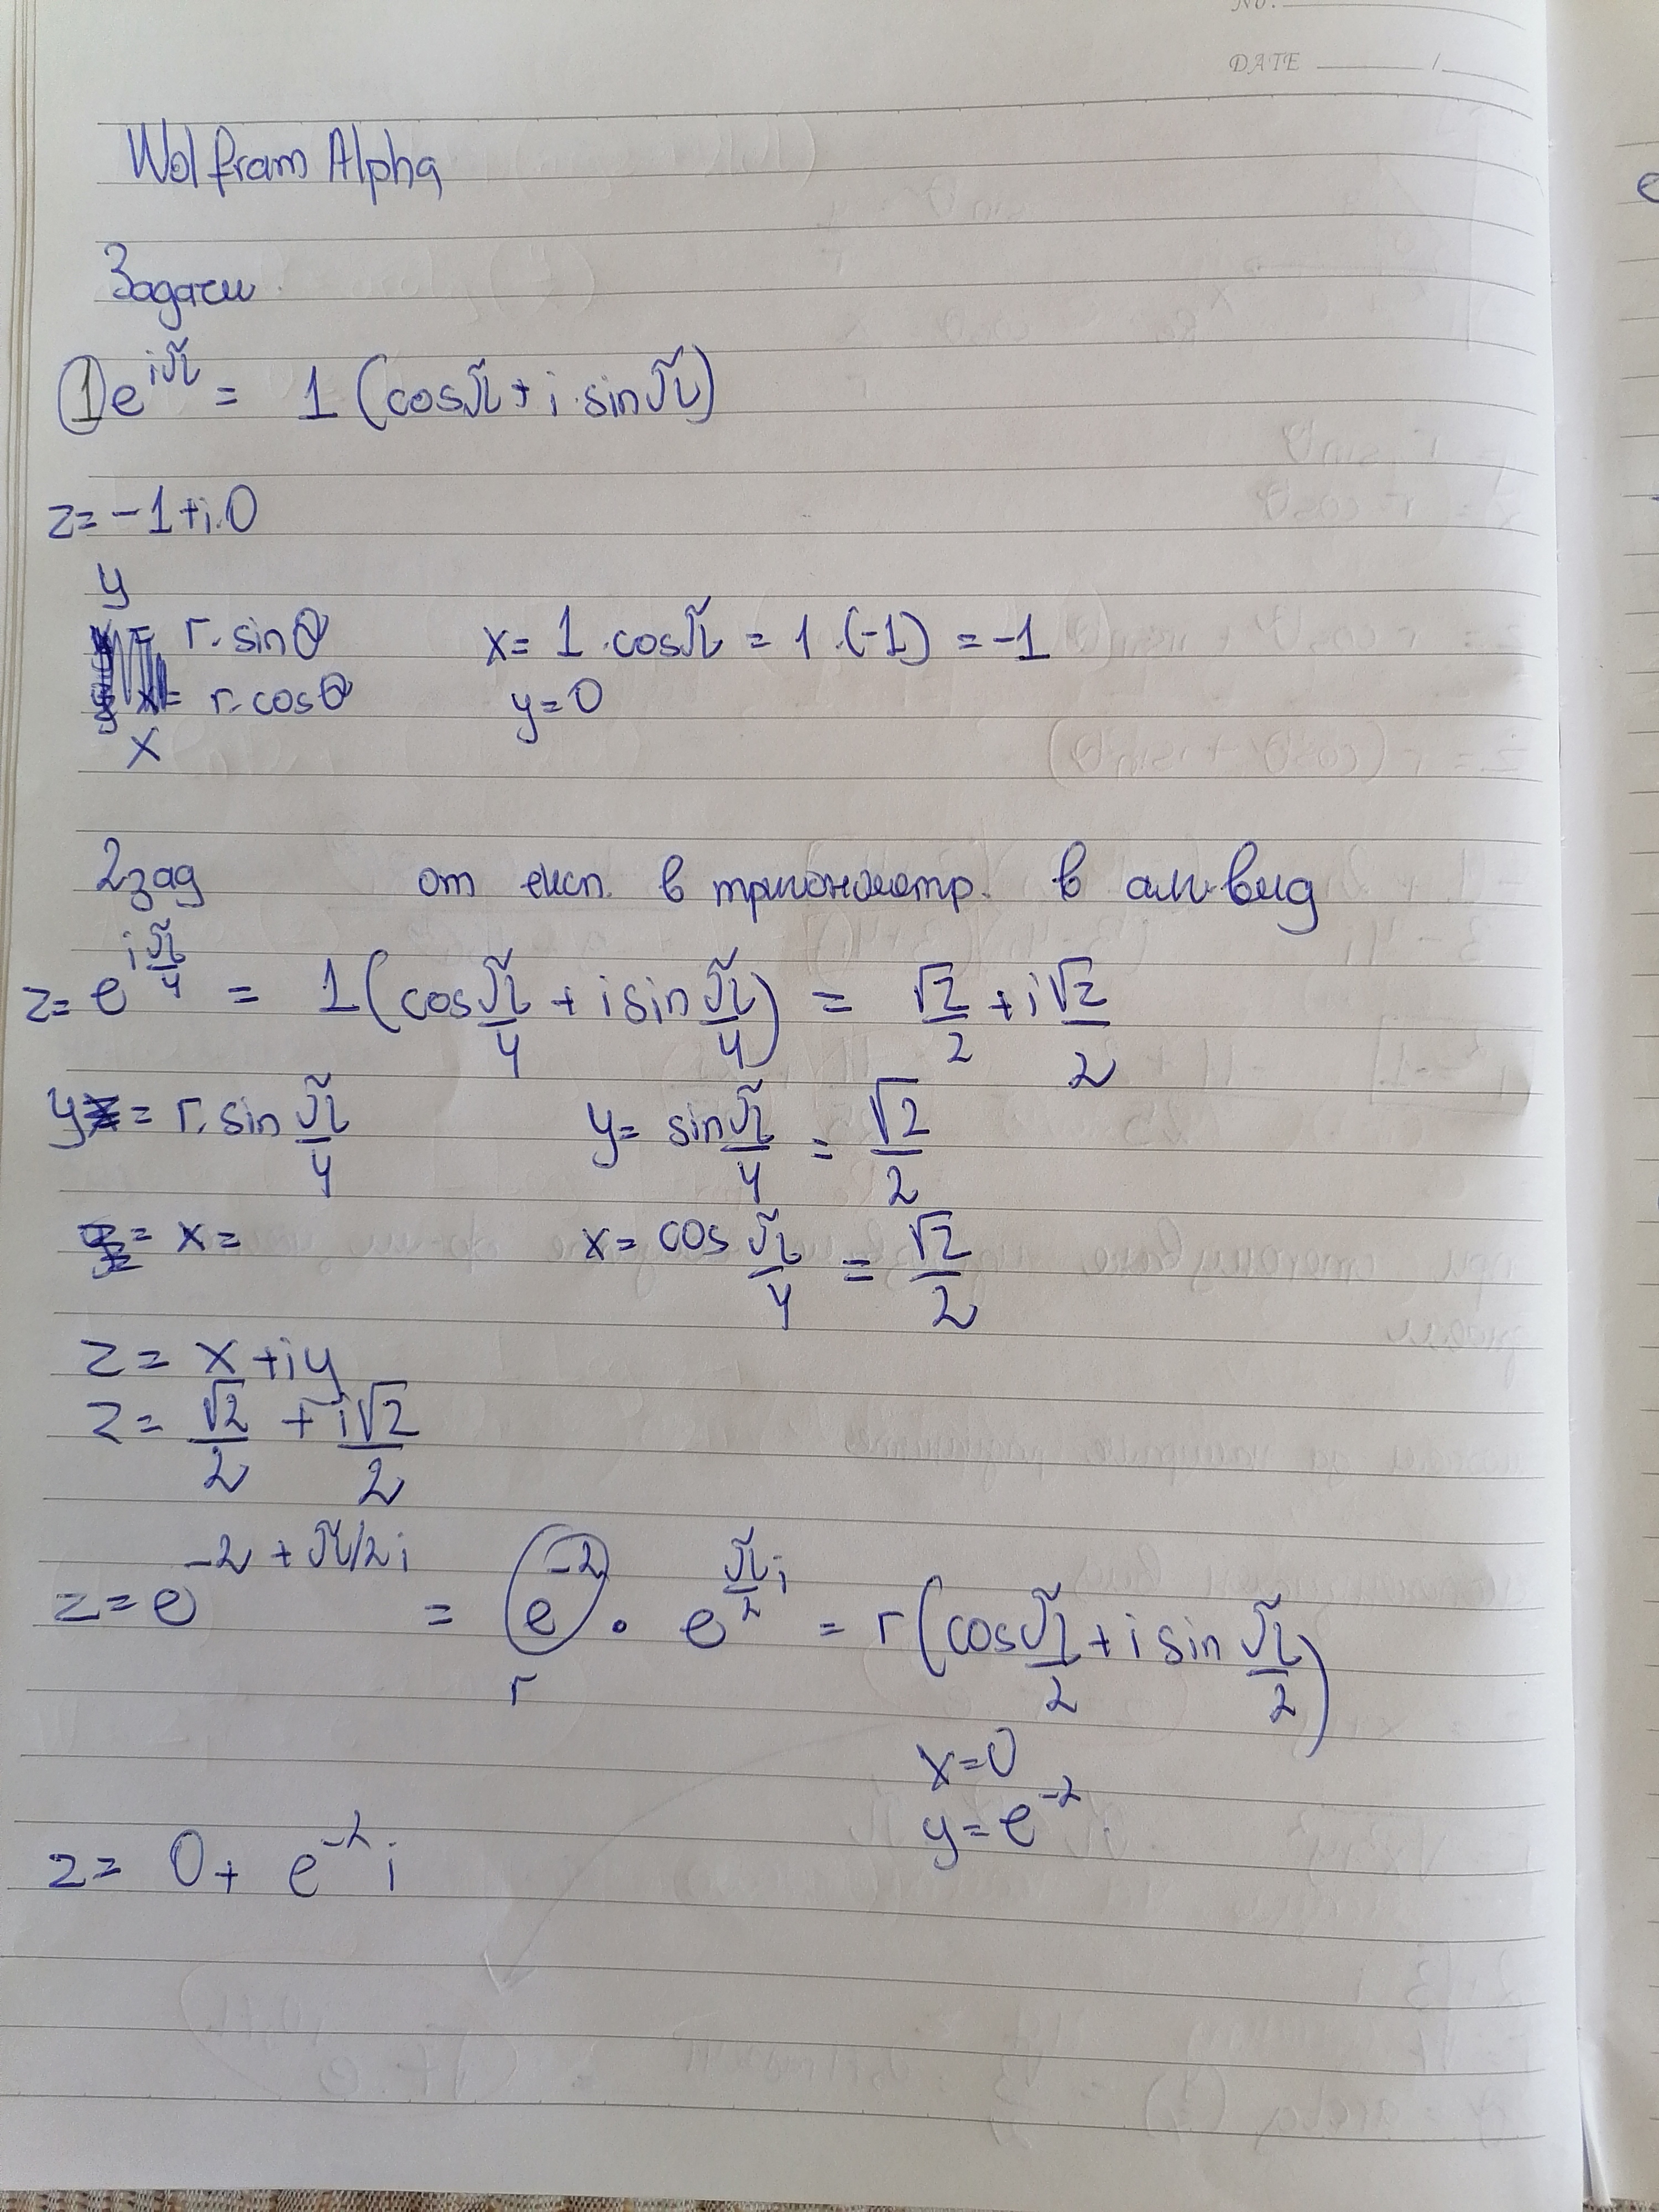 No.
DATE /
Wolfram Alpha
Задачи
① e^{iπ} = 1 (cosπ + i.sinπ)
z = -1 + i.0
y
= r.sinθ x = 1.cosπ = 1.(-1) = -1
x = r.cosθ y = 0
x
2зад от експ. в тригонометр. в алг. вид
z = e^{iπ/4} = 1(cos π/4 + i sin π/4) = √2/2 + i√2/2
y = r.sin π/4 y = sin π/4 = √2/2
= x = x = cos π/4 = √2/2
z = x + iy
z = √2/2 + i√2/2
z = e^{-2 + π/2i} = e^{-2} . e^{π/2 i} = r(cos π/2 + i sin π/2)
r
x = 0
y = e^{-2}
z = 0 + e^{-2} i